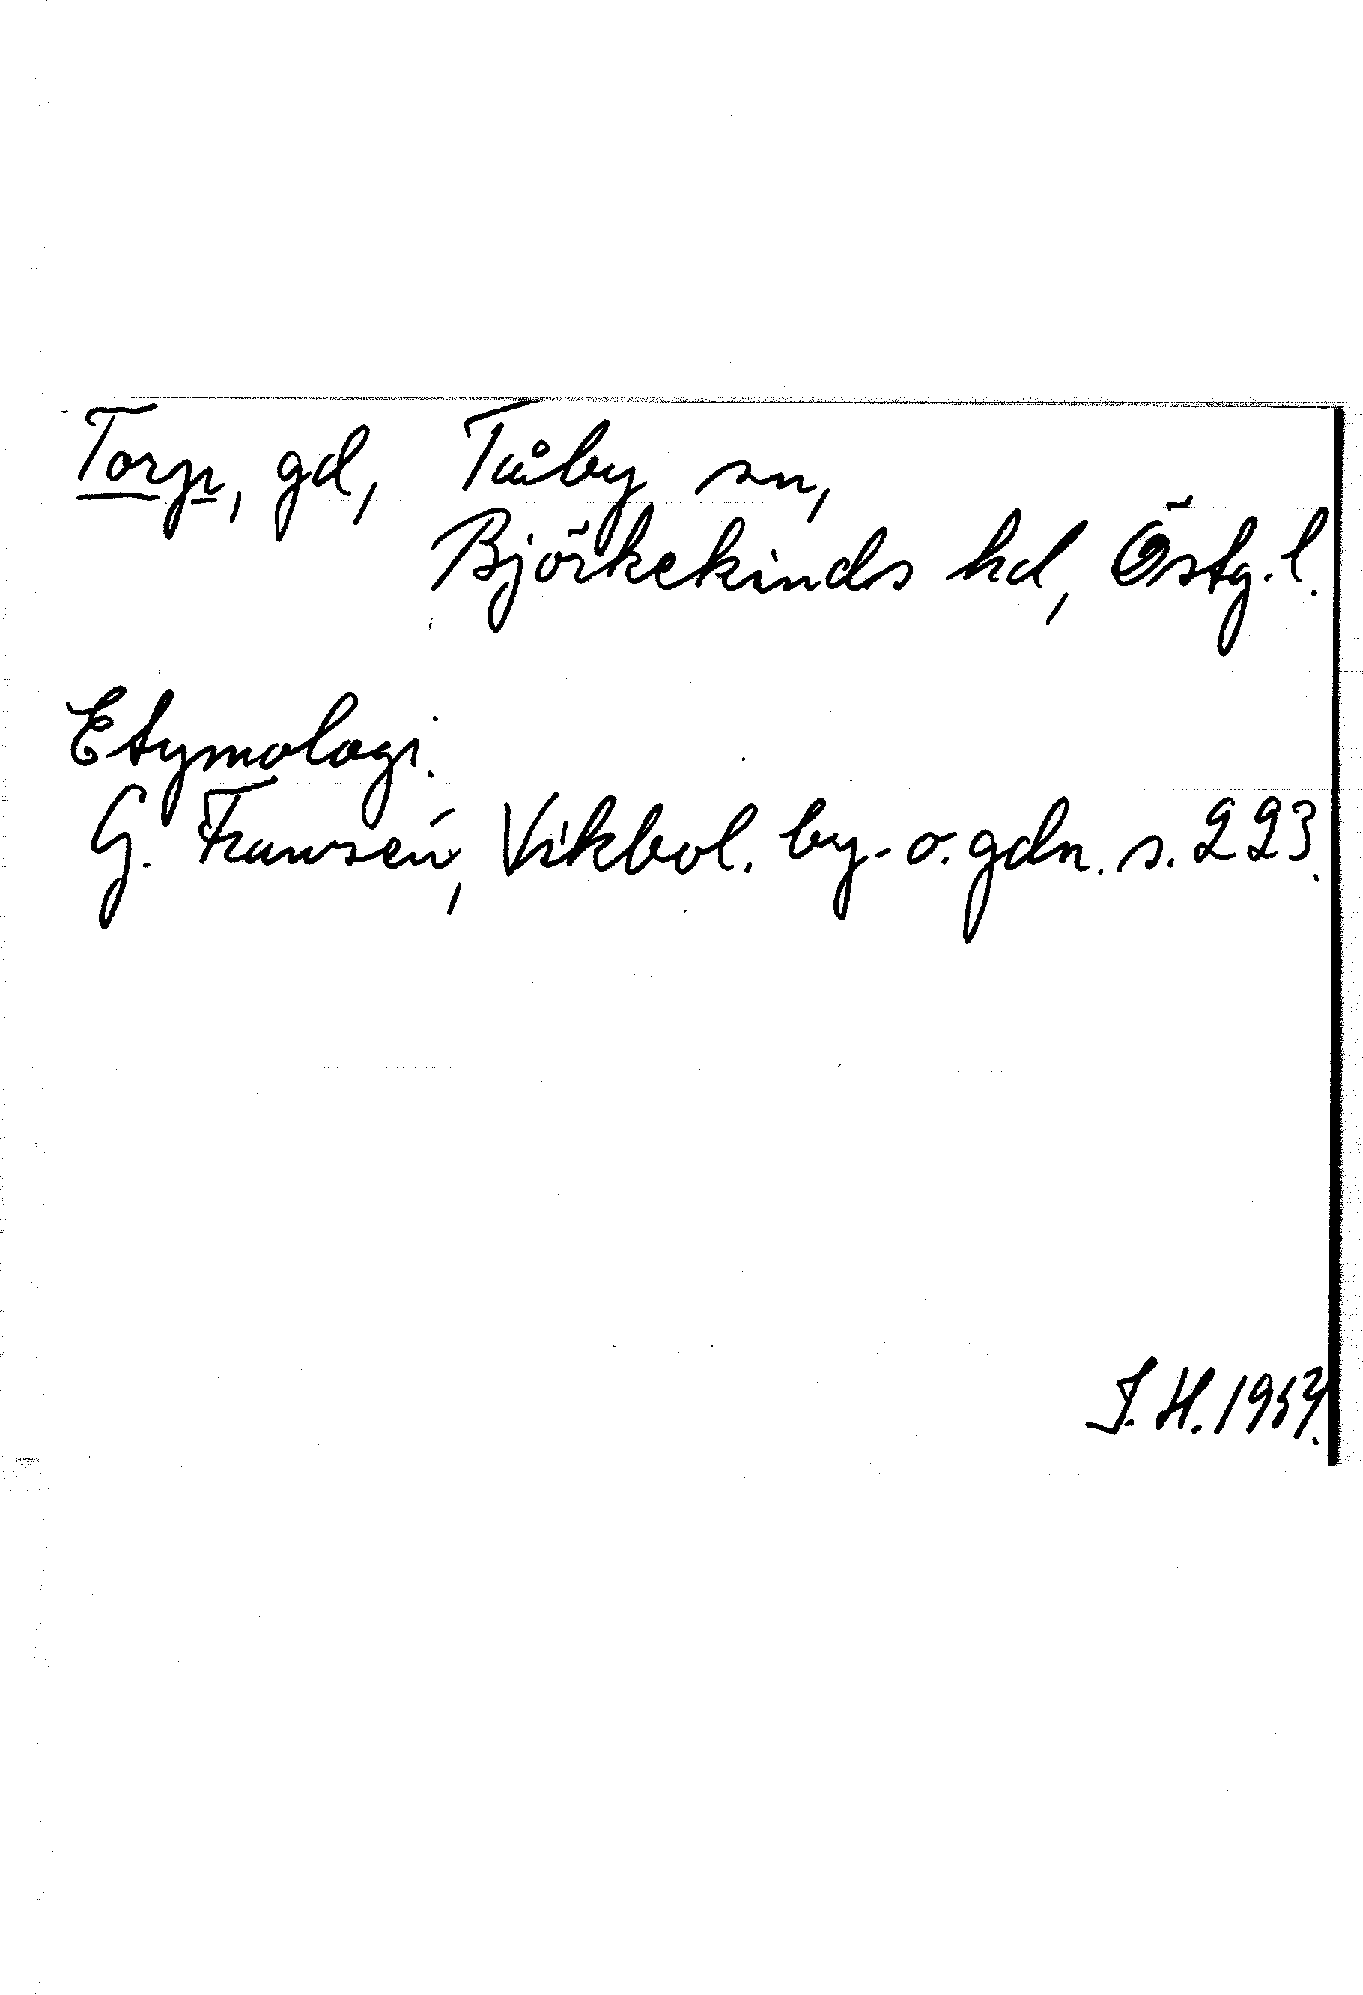 Torp, gd, Tåby sn,
Björkekinds hd, Östg. l.
Etymologi.
G. Franzén, Vikbol. by- o. gdn. s. 223.
J. H. 1954.